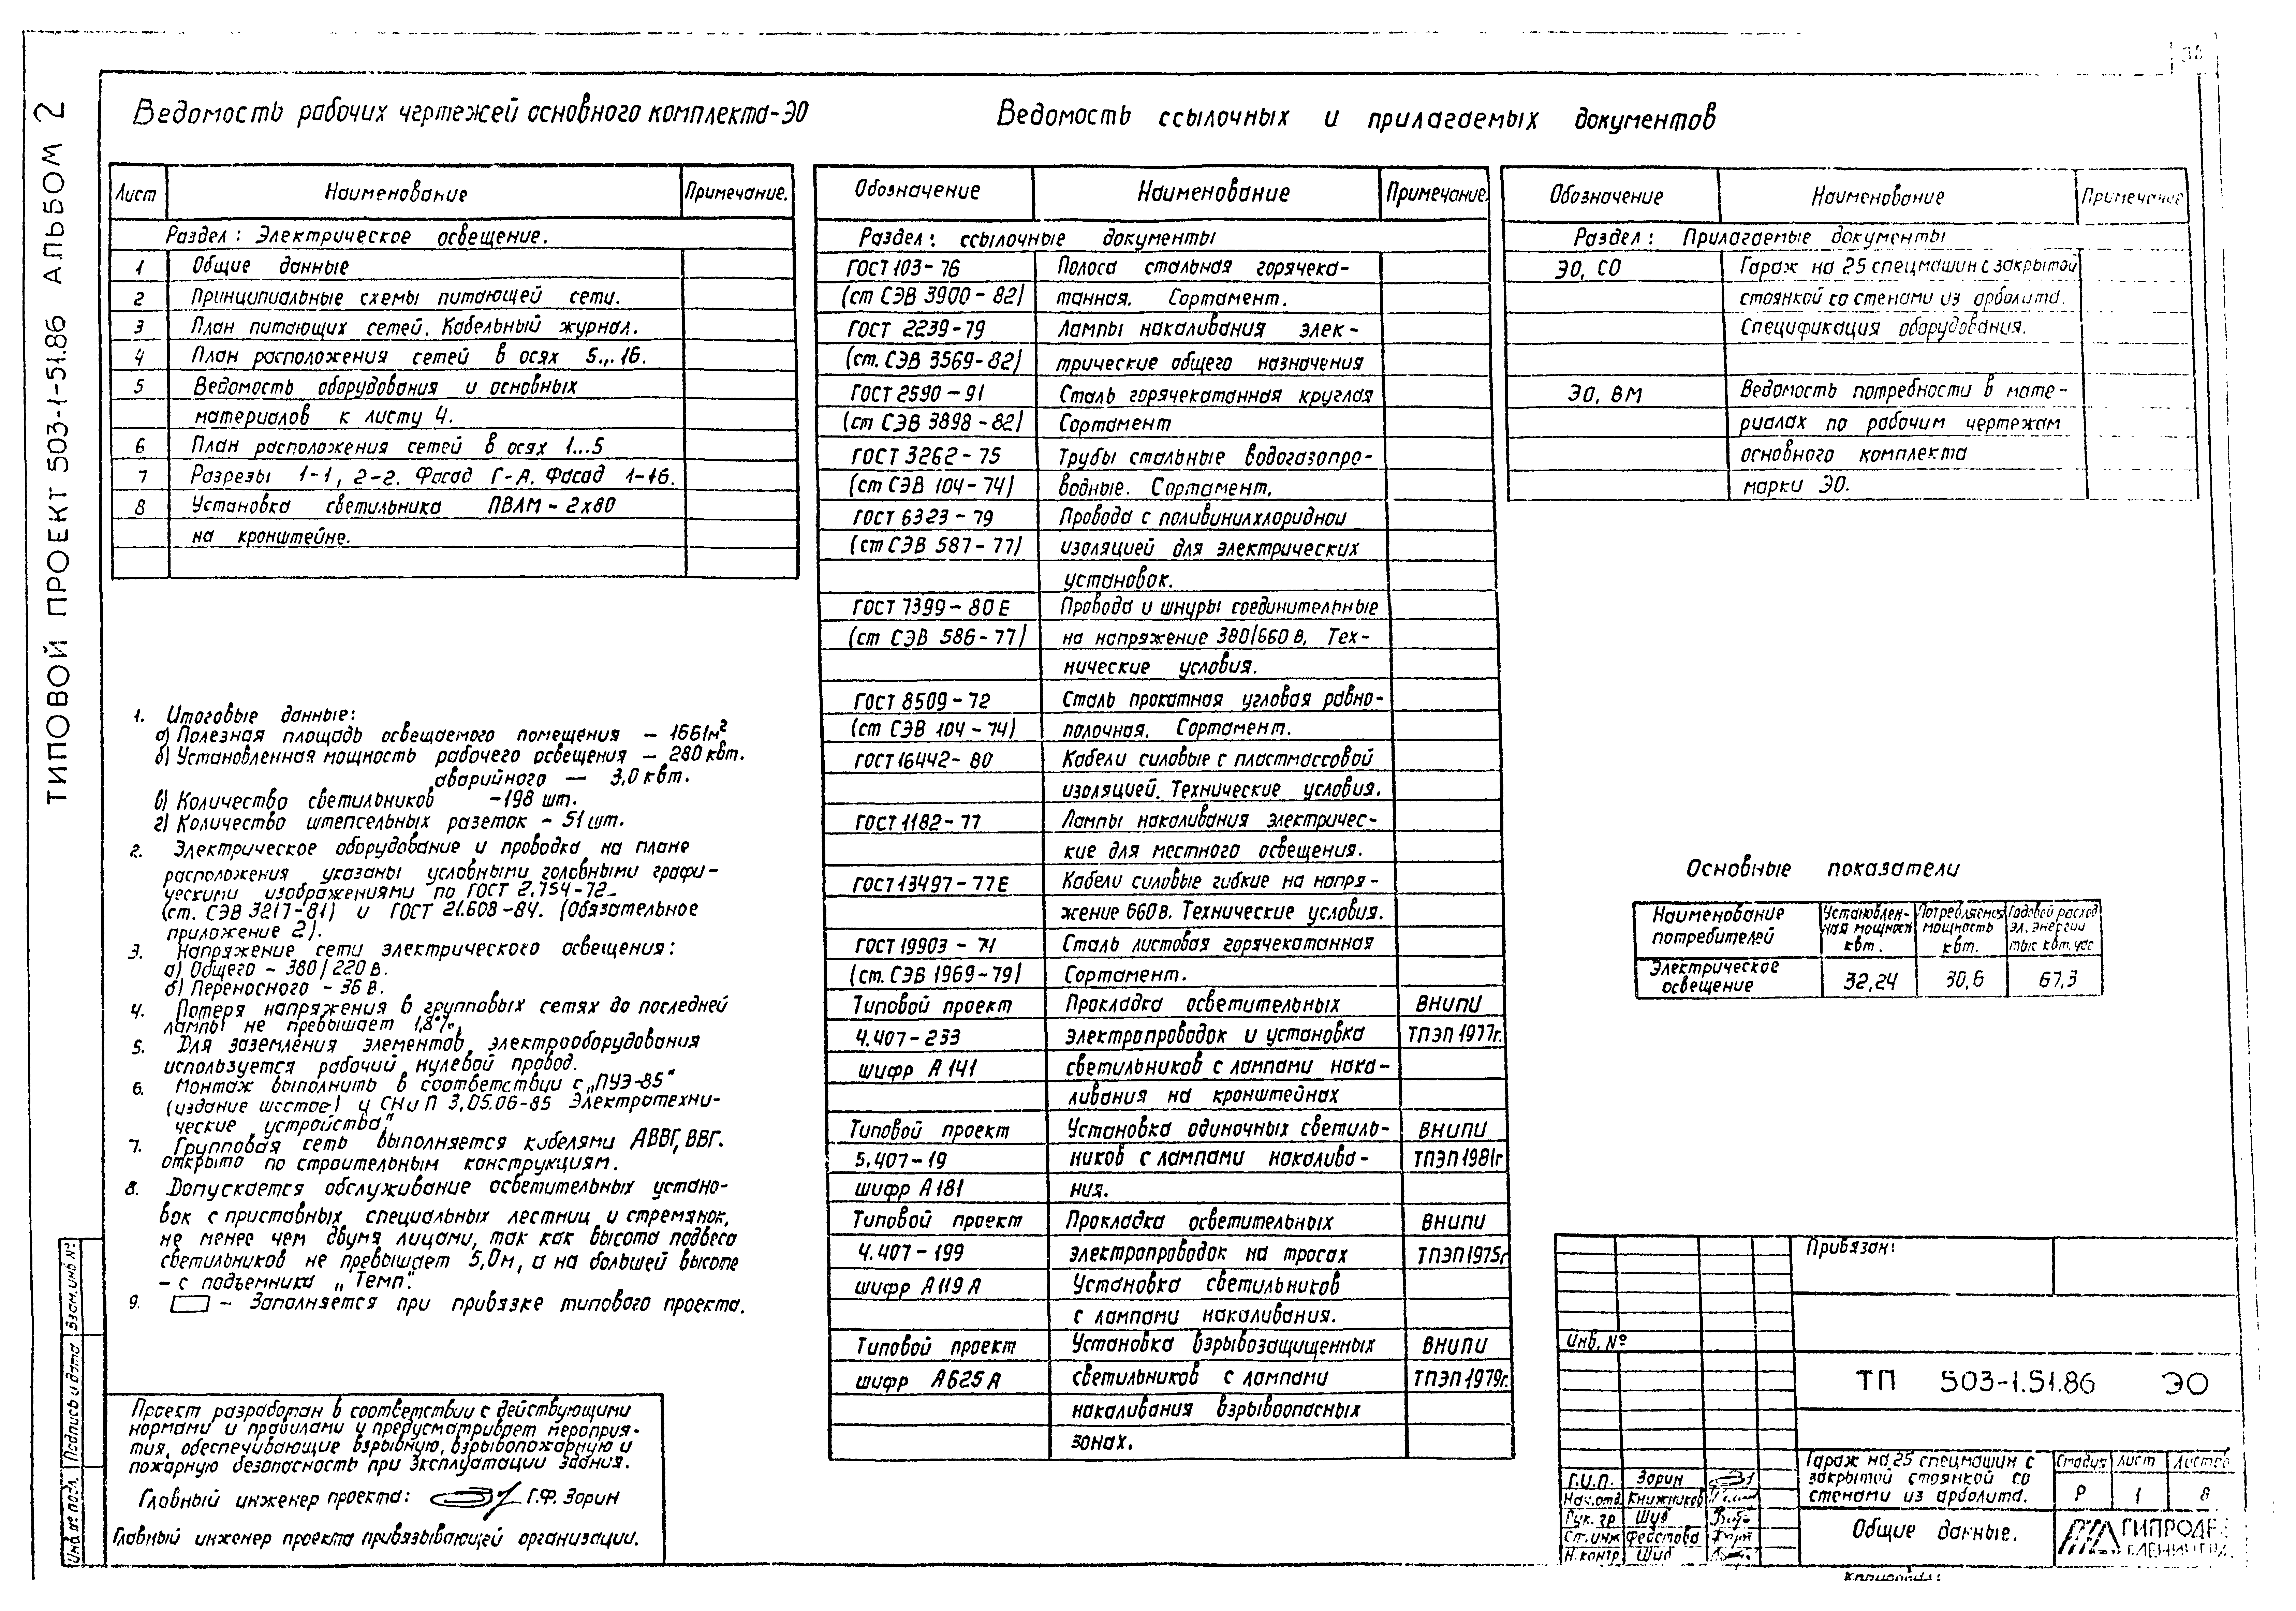 ТИПОВОЙ ПРОЕКТ 503-1-51.86 АЛЬБОМ 2
Ведомость рабочих чертежей основного комплекта-ЭО
Лист Наименование Примечание.
Раздел: Электрическое освещение.
1 Общие данные
2 Принципиальные схемы питающей сети.
3 План питающих сетей. Кабельный журнал.
4 План расположения сетей в осях 5...16.
5 Ведомость оборудования и основных
материалов к листу 4.
6 План расположения сетей в осях 1...5
7 Разрезы 1-1, 2-2. Фасад Г-А. Фасад 1-16.
8 Установка светильника ПВЛМ-2х80
на кронштейне.
1. Итоговые данные:
а) Полезная площадь освещаемого помещения – 1661м²
б) Установленная мощность рабочего освещения – 280 квт.
аварийного — 3,0 квт.
в) Количество светильников -198 шт.
г) Количество штепсельных разеток - 51 шт.
2. Электрическое оборудование и проводка на плане
расположения указаны условными головными графи-
ческими изображениями по ГОСТ 2.754-72
(ст. СЭВ 3217-81) и ГОСТ 21.608-84. (Обязательное
приложение 2).
3. Напряжение сети электрического освещения:
а) Общего - 380/220 в.
б) Переносного - 36 в.
4. Потеря напряжения в групповых сетях до последней
лампы не превышает 1,8%.
5. Для заземления элементов электрооборудования
используется рабочий нулевой провод.
6. Монтаж выполнить в соответствии с „ПУЭ-85"
(издание шестое) и СНиП 3.05.06-85 Электротехни-
ческие устройства"
7. Групповая сеть выполняется кабелями АВВГ, ВВГ.
открыто по строительным конструкциям.
8. Допускается обслуживание осветительных устано-
вок с приставных специальных лестниц и стремянок,
не менее чем двумя лицами, так как высота подвеса
светильников не превышает 5,0м, а на большей высоте
- с подъемника „Темп".
9. – Заполняется при привязке типового проекта.
Проект разработан в соответствии с действующими
нормами и правилами и предусматривает мероприя-
тия, обеспечивающие взрывную, взрывопожарную и
пожарную безопасность при эксплуатации здания.
Главный инженер проекта: Г.Ф. Зорин
Главный инженер проекта привязывающей организации.
Инв № подл. Подпись и дата Взам. инв №
Ведомость ссылочных и прилагаемых документов
Обозначение Наименование Примечание.
Раздел: ссылочные документы
ГОСТ 103-76 Полоса стальная горячека-
(ст СЭВ 3900-82) танная. Сортамент.
ГОСТ 2239-79 Лампы накаливания элек-
(ст. СЭВ 3569-82) трические общего назначения
ГОСТ 2590-91 Сталь горячекатанная круглая
(ст СЭВ 3898-82) Сортамент
ГОСТ 3262-75 Трубы стальные водогазопро-
(ст СЭВ 104-74) водные. Сортамент.
ГОСТ 6323-79 Провода с поливинилхлоридной
(ст СЭВ 587-77) изоляцией для электрических
установок.
ГОСТ 7399-80Е Провода и шнуры соединительные
(ст СЭВ 586-77) на напряжение 380/660 в. Тех-
нические условия.
ГОСТ 8509-72 Сталь прокатная угловая равно-
(ст СЭВ 104-74) полочная. Сортамент.
ГОСТ 16442-80 Кабели силовые с пластмассовой
изоляцией. Технические условия.
ГОСТ 1182-77 Лампы накаливания электричес-
кие для местного освещения.
ГОСТ 13497-77Е Кабели силовые гибкие на напря-
жение 660в. Технические условия.
ГОСТ 19903-74 Сталь листовая горячекатанная
(ст. СЭВ 1969-79) Сортамент.
Типовой проект Прокладка осветительных ВНИПИ
4.407-233 электропроводок и установка ТПЭП 1977г.
шифр А 141 светильников с лампами нака-
ливания на кронштейнах
Типовой проект Установка одиночных светиль- ВНИПИ
5.407-19 ников с лампами накалива- ТПЭП 1981г
шифр А 181 ния.
Типовой проект Прокладка осветительных ВНИПИ
4.407-199 электропроводок на тросах ТПЭП 1975г
шифр А119А Установка светильников
с лампами накаливания.
Типовой проект Установка взрывозащищенных ВНИПИ
шифр А625А светильников с лампами ТПЭП 1979г.
накаливания взрывоопасных
зонах.
Обозначение Наименование Примечание
Раздел: Прилагаемые документы
ЭО, СО Гараж на 25 спецмашин с закрытой
стоянкой со стенами из арболита.
Спецификация оборудования.
ЭО, ВМ Ведомость потребности в мате-
риалах по рабочим чертежам
основного комплекта
марки ЭО.
Основные показатели
Наименование потребителей Установлен-ная мощность квт. Потребляемая мощность квт. Годовой расход эл. энергии тыс квт. час
Электрическое освещение 32,24 30,6 67,3
Привязан:
Инв. №
ТП 503-1.51.86 ЭО
Г.И.П. Зорин
Нач.отд. Книжников
Рук. гр Шуб
Ст. инж Федотова
Н.контр Шуб
Гараж на 25 спецмашин с
закрытой стоянкой со
стенами из арболита.
Стадия Лист Листов
Р 1 8
Общие данные.